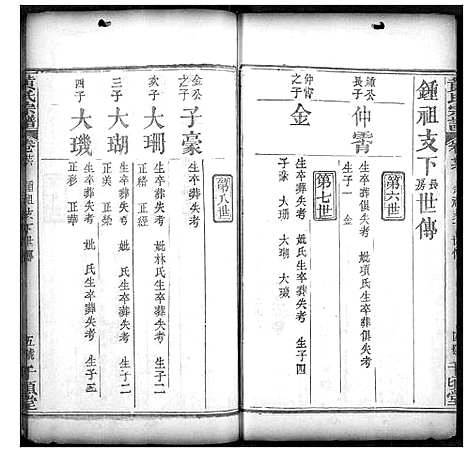 黃氏宗譜
卷
鍾祖支下長房世傳
第六世
鍾公長子
仲霄
生卒葬俱失考 妣項氏生卒葬俱失考
生子一 金
第七世
仲霄之子
金
生卒葬失考 妣氏生卒葬失考 生子四
子豪 大珊 大瑚 大璣
千頃堂
第八世
金公之子
子豪
生卒葬失考
次子
大珊
生卒葬失考 妣林氏生卒葬失考 生子二
正緒 正經
三子
大瑚
生卒葬失考 妣氏生卒葬失考 生子二
正美 正榮
四子
大璣
生卒葬失考 妣氏生卒葬失考 生子二
正彩 正華
黃氏宗譜
卷
鍾祖支下世傳
五號
千頃堂